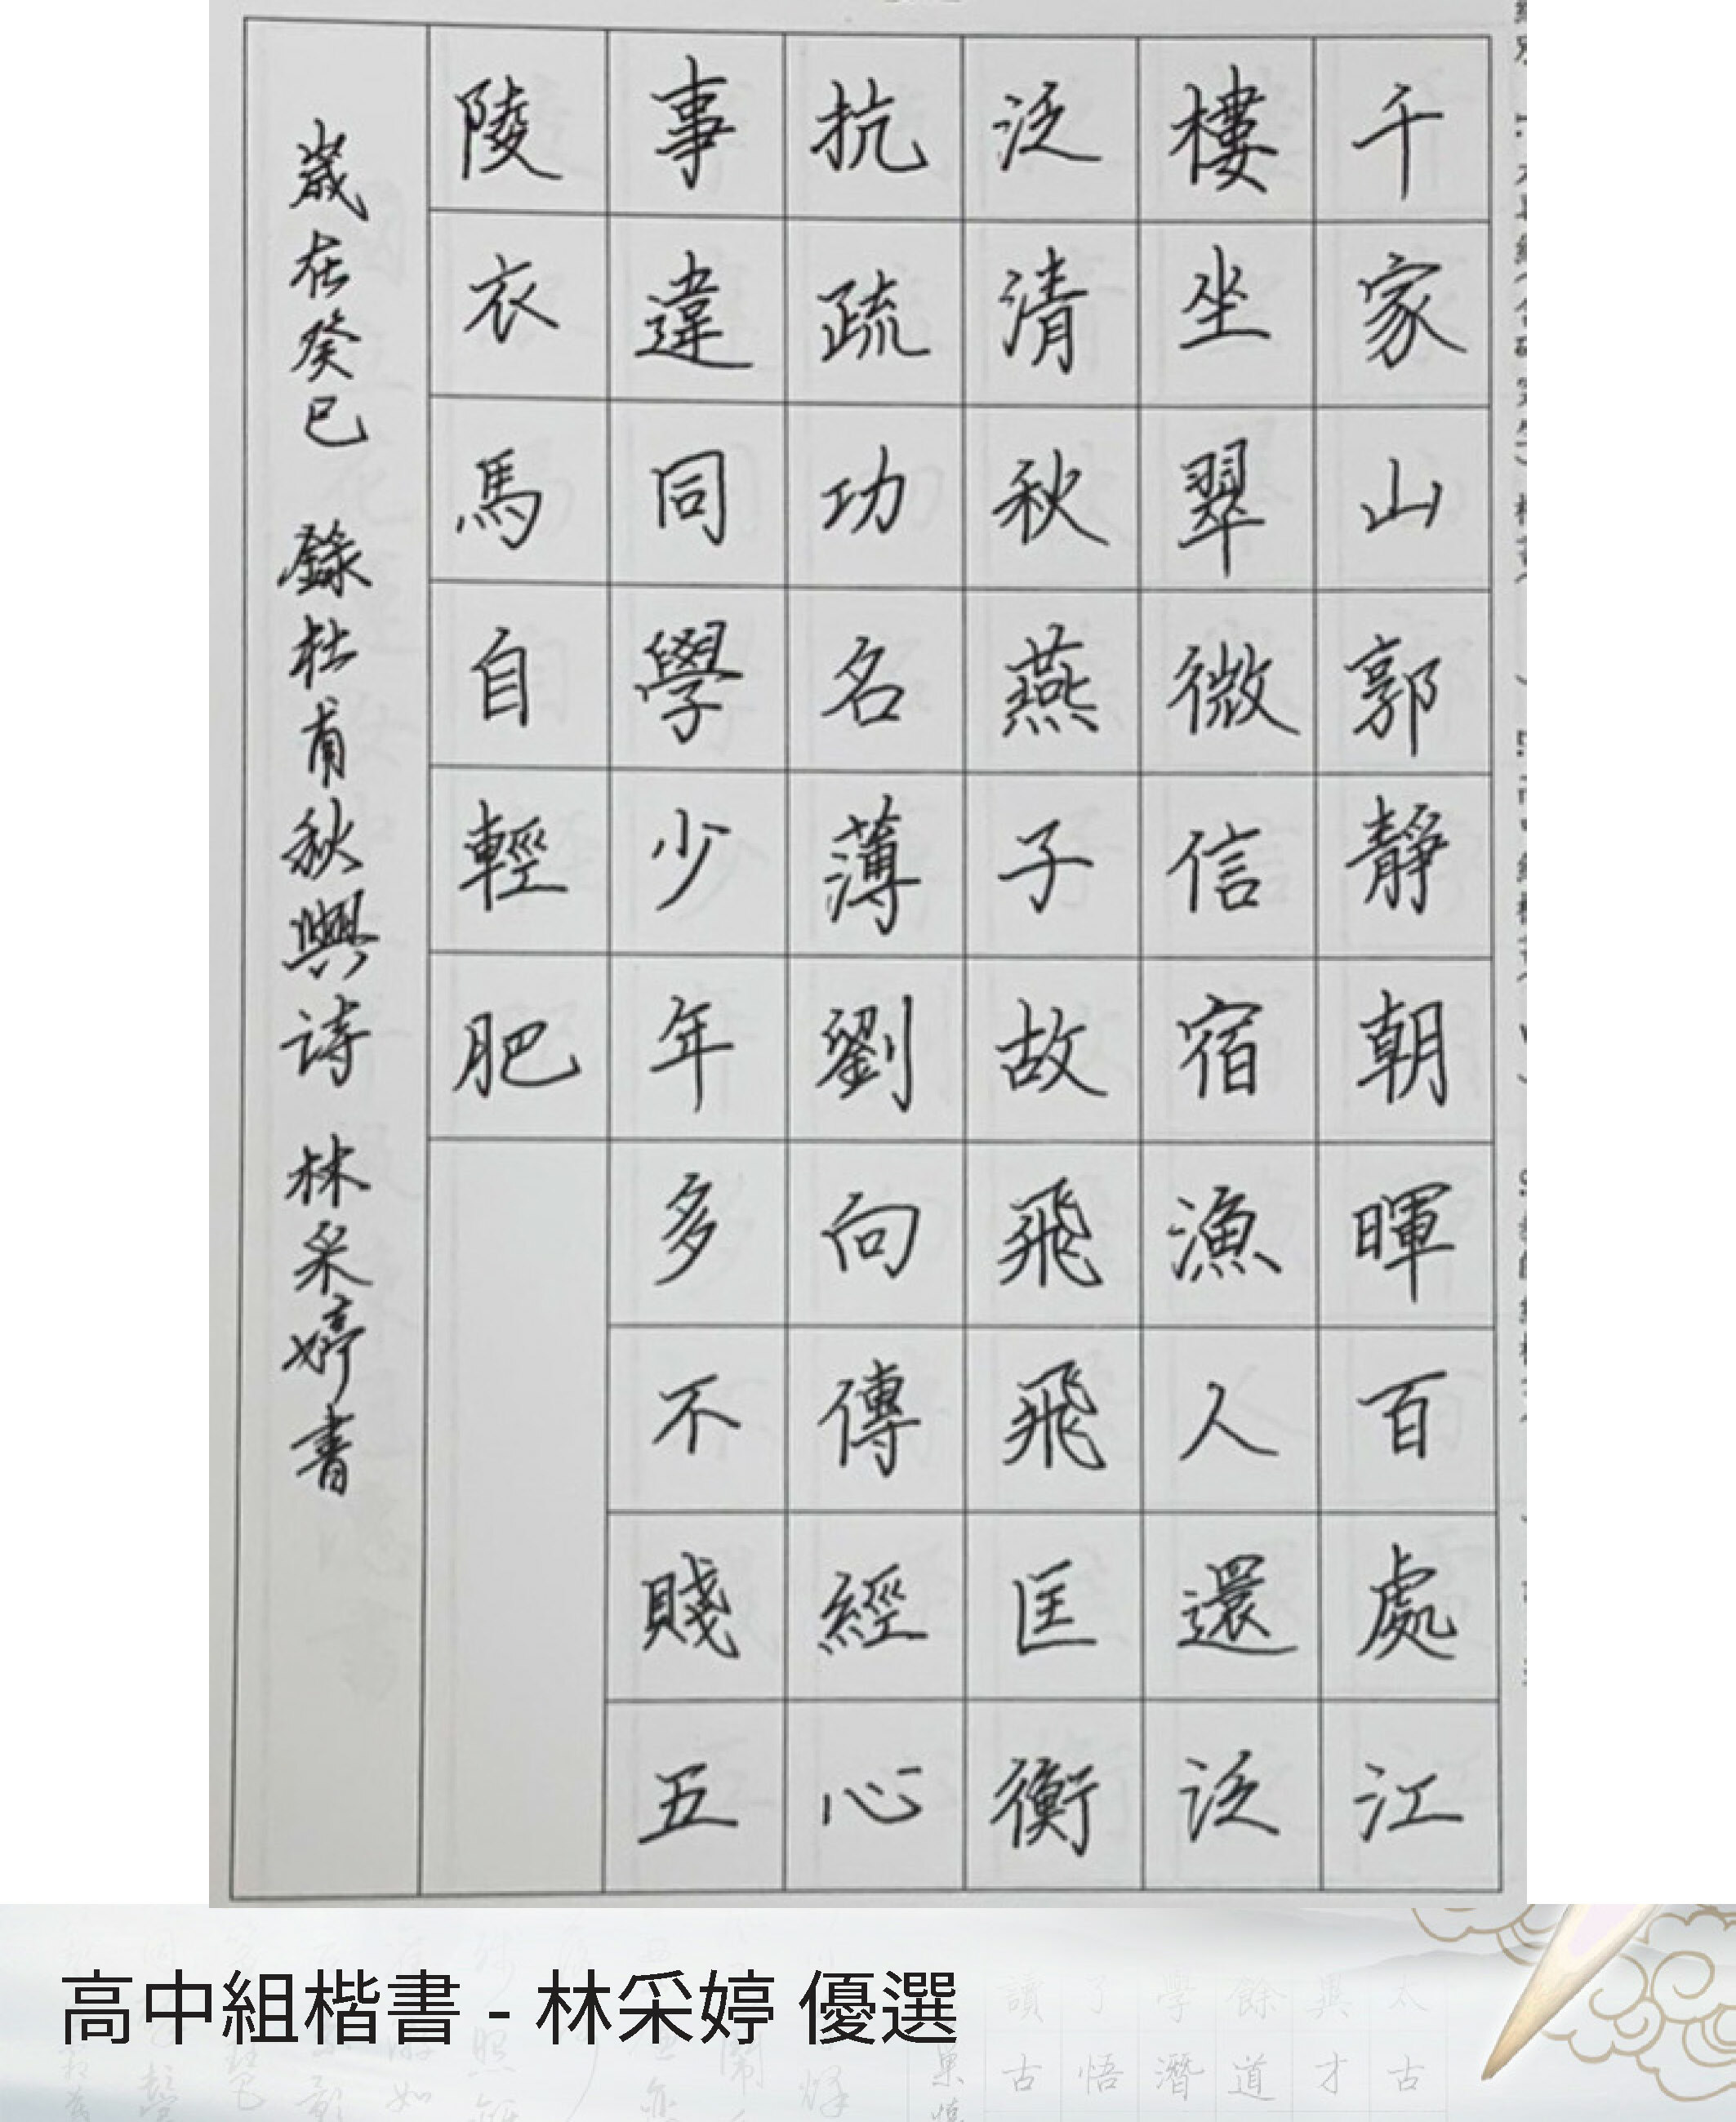 千家山郭靜朝暉百處江
樓坐翠微信宿漁人還泛
泛清秋燕子故飛飛匡衡
抗疏功名薄劉向傳經心
事違同學少年多不賤五
陵衣馬自輕肥
歲在癸巳 錄杜甫秋興詩 林采婷書
高中組楷書 - 林采婷 優選